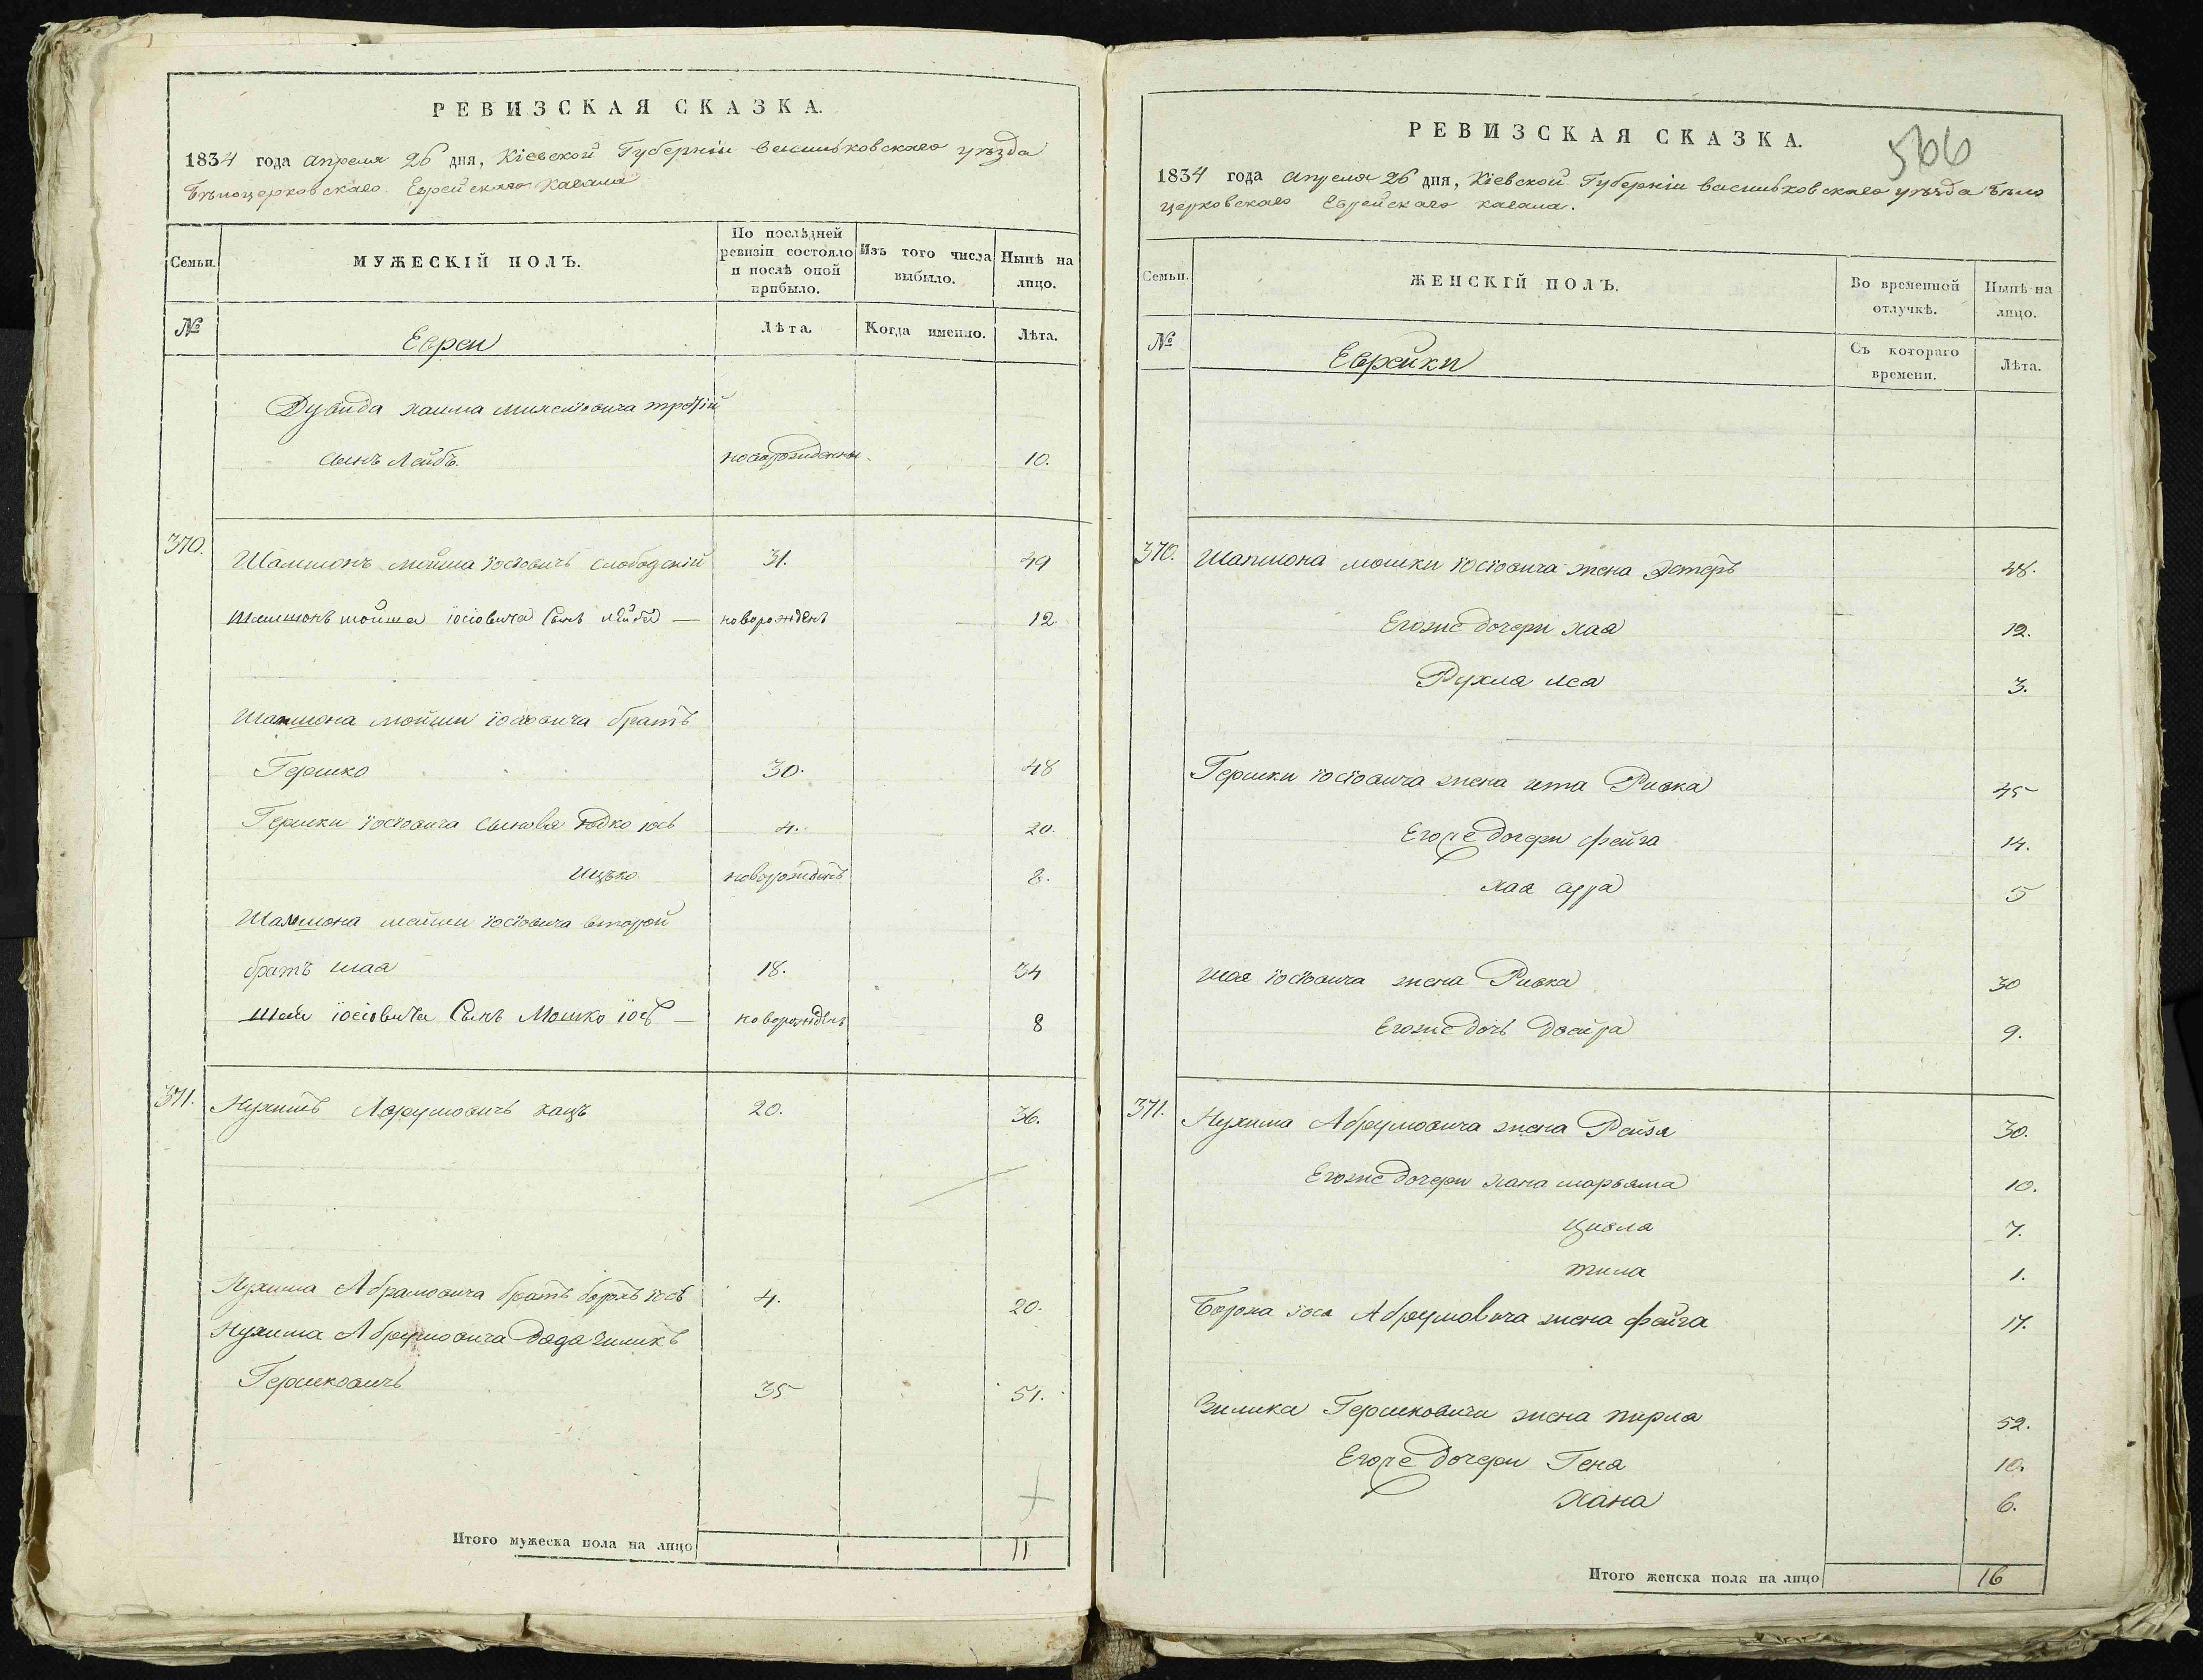 РЕВИЗСКАЯ СКАЗКА.
1834 года Апреля 26 дня, Кіевской Губерніи Васильковскаго уѣзда
Бѣлоцерковскаго Еврейскаго Кагала
Семьи.
МУЖЕСКІЙ ПОЛЪ.
По послѣдней ревизіи состояло и послѣ оной прибыло.
Изъ того числа выбыло.
Нынѣ на лицо.
№
Евреи
Лѣта.
Когда именно.
Лѣта.
Дувида Хаима третій
сынъ Лейбъ. 10.
370. Шамшонъ Мойша Іосіовичъ Слободскій 31. 49
Шамшонъ Мойша Іосіовича Сынъ новорожденъ 12.
Шамшона Мойши Іосіовича братъ
Гершко 30. 48
Гершки Іосіовича сыновья Юдко Іось 4. 20.
Ицько новорожденъ 8.
Шамшона Мойши Іосіовича второй
братъ Шая 18. 34
Шаи Іосіовича Сынъ Мошко Іось новорожденъ 8
371. Нухимъ Аврумовичъ Кацъ 20. 36.
Нухима Абрамовича братъ Борхъ Іось 4. 20.
Нухима Абрумовича дядя Зиликъ
Гершковичъ 35 51.
Итого мужеска пола на лицо 11
566
РЕВИЗСКАЯ СКАЗКА.
1834 года Апреля 26 дня, Кіевской Губерніи Васильковскаго уѣзда Бѣло
церковскаго Еврейскаго Кагала.
Семьи.
ЖЕНСКІЙ ПОЛЪ.
Во временной отлучкѣ.
Нынѣ на лицо.
№
Еврейки
Съ котораго времени.
Лѣта.
370. Шапшона Мошки Іосіовича жена Эстеръ 48.
Егоже дочери Хая 12.
Рухля Лея 3.
Гершки Іосіовича жена Ита Ривка 45
Егоже дочери Фейга 14.
Хая 5
Шая Іосіовича жена Ривка 30
Егоже дочь Двойра 9.
371. Нухима Абрумовича жена Рейзя 30.
Егоже дочери Хана Марьяма 10.
Цивля 7.
1.
Борха Іося Абрумовича жена Фейга 17.
Зилика Гершковича жена Пирля 52.
Егоже дочери Геня 10.
Хана 6.
Итого женска пола на лицо 16